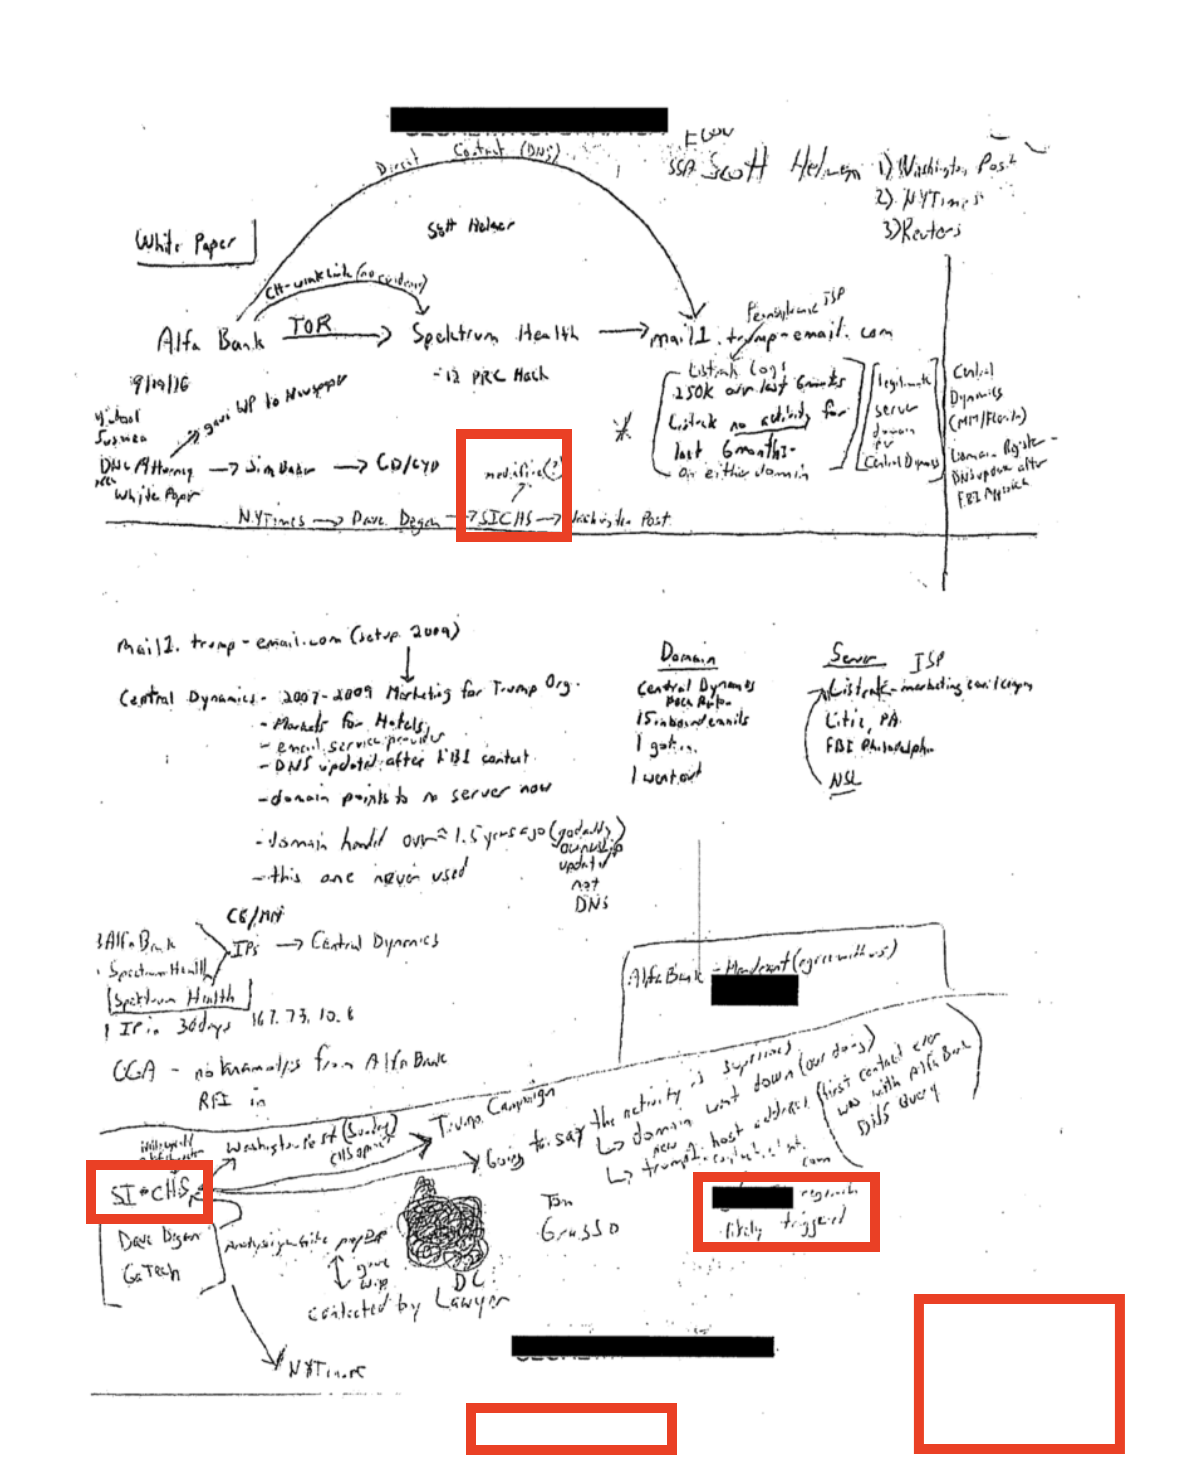 Direct Contact (DNS)
SSA Scott Hellman
1) Washington Post
2) NYTimes
3) Reuters
White Paper
(no evidence)
Alfa Bank TOR Spektrum Health mail1.trump-email.com
Pennsylvania ISP
9/19/16
- 12 PRC Hack
gave WP to Newspaper
DNC Attorney
White Paper
Jim Baker CD/CYD
mediafire(?)
NYTimes Dave Dagon SICHS Washington Post
Listrak logs
250K over last 6 months
Listrak no activity for
last 6 months-
on either domain
legitimate
server
domain
Central Dynamics
Central
Dynamics
Domain Register -
DNS update after
FBI Approach
mail1.trump-email.com (setup 2009)
Central Dynamics - 2007-2009 Marketing for Trump Org.
- Markets for Hotels
- email service provider
- DNS updated after FBI contact
- domain points to no server now
- domain handed over ≈ 1.5 years ago (godaddy)
ownership
updated
not
DNS
- this one never used
Domain
Central Dynamics
15 inbound emails
1 got in
1 went out
Server ISP
Listrak - marketing email company
Lititz, PA
FBI Philadelphia
NSL
IPs Central Dynamics
3 Alfa Bank
1 Spectrum Health
Spektrum Health
1 IP in 30 days 167.73.10.8
OGA - no from Alfa Bank
RFI in
Alfa Bank - Mandiant (agree with us)
Washington Post (Sunday)
Trump Campaign
Going to say the activity is suspicious
domain went down (our doing)
new host address (first contact ever
was with Alfa Bank
DNS Query
trump1.contact-client.com
SI - CHS
Dave Dagon
GaTech
analysis white paper
gave
WP
DC
contacted by Lawyer
Tom
Grasso
likely triggered
NYTimes